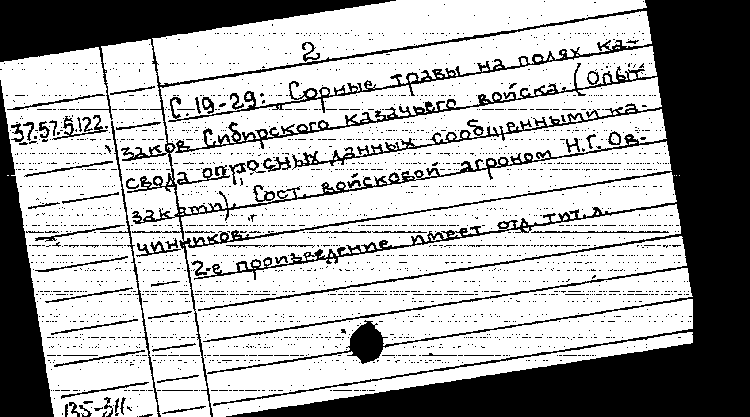 2
С. 19-29: „Сорные травы на полях ка-
37.57.5.122.
заков Сибирского казачьего войска. (Опыт
свода опросных данных сообщенными ка-
заками). Сост. войсковой агроном Н.Г. Ов-
чинников."
2-е произведение имеет отд. тит. л.
135-311.